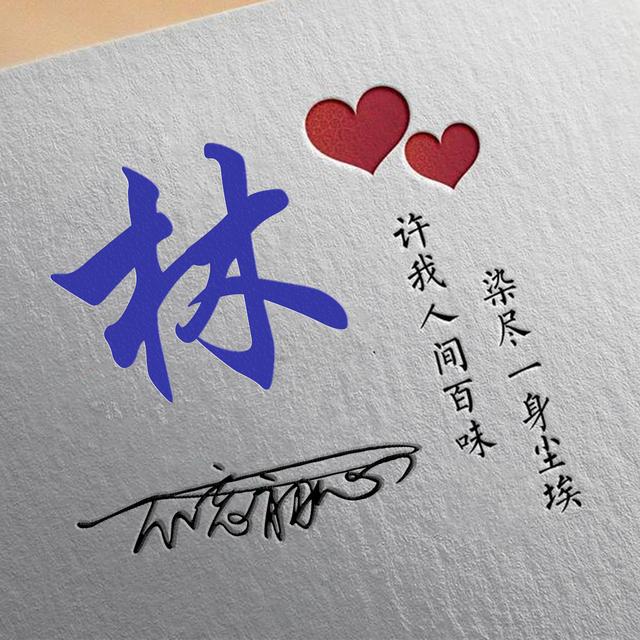 林
许我人间百味
染尽一身尘埃